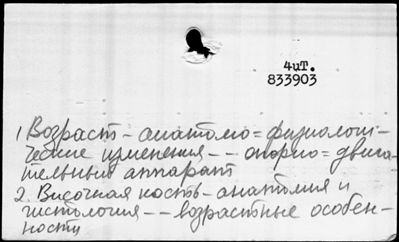 4чт.
833903
1 Возраст - анатомо=физиологи-
ческие изменения -- опорно=двига-
тельный аппарат
2. Височная кость - анатомия и
гистология -- возрастные особен-
ности